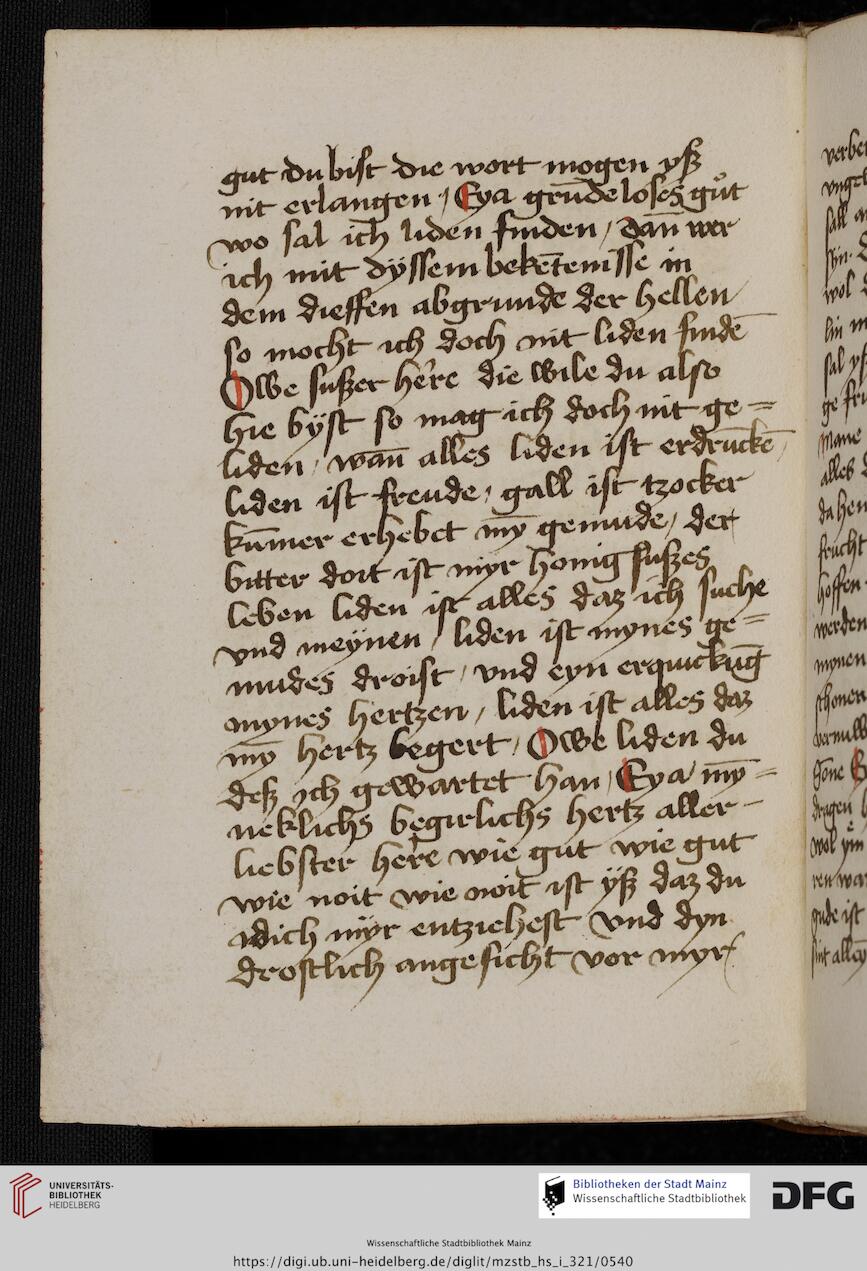 gut du bist die wort mogen yß
nit erlangen / Eya grūdeloses gůt
wo sal ich liden finden / dan̄ wer
ich mit dÿssem bekēteniſſe in
dem dieffen abgrunde der hellen
so mocht ich doch nit liden findē
Owe sußer herre die wile du also
hie bÿst so mag ich doch nit ge=
liden / wan̄ alles liden ist erdrūckē /
liden ist freude / gall ist tzocker
kūmer erhebet mȳ gemude / der
bitter doit ist myr honig sußes
leben liden ist alles daz ich suche
vnd meÿnen / liden ist mynes ge=
mudes droist / vnd eyn erquickūg
mynes hertzen / liden ist alles daz
mȳ hertz begert / Owe liden du
deß ich gewartet han / Eya mȳ=
neklichs begirlichs hertz aller-
liebster herre wie gut wie gut
wie noit wie noit ist ÿß daz du
dich mÿr entziehest vnd dyn
drostlich angesicht vor myr
UNIVERSITÄTS-
BIBLIOTHEK
HEIDELBERG
Bibliotheken der Stadt Mainz
Wissenschaftliche Stadtbibliothek
DFG
Wissenschaftliche Stadtbibliothek Mainz
https://digi.ub.uni-heidelberg.de/diglit/mzstb_hs_i_321/0540